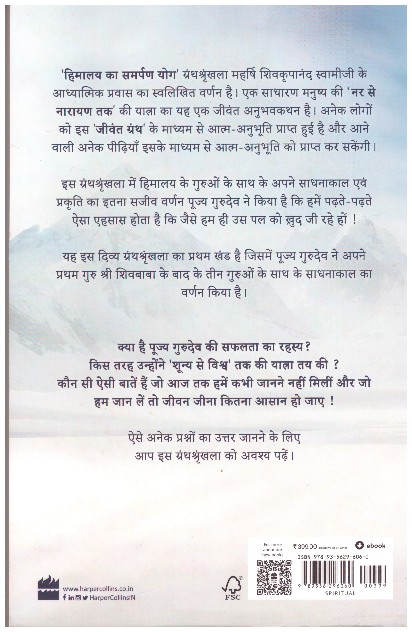 'हिमालय का समर्पण योग' ग्रंथश्रृंखला महर्षि शिवकृपानंद स्वामीजी के
आध्यात्मिक प्रवास का स्वलिखित वर्णन है। एक साधारण मनुष्य की 'नर से
नारायण तक' की यात्रा का यह एक जीवंत अनुभवकथन है। अनेक लोगों
को इस 'जीवंत ग्रंथ' के माध्यम से आत्म-अनुभूति प्राप्त हुई है और आने
वाली अनेक पीढ़ियाँ इसके माध्यम से आत्म-अनुभूति को प्राप्त कर सकेंगी।
इस ग्रंथश्रृंखला में हिमालय के गुरुओं के साथ के अपने साधनाकाल एवं
प्रकृति का इतना सजीव वर्णन पूज्य गुरुदेव ने किया है कि हमें पढ़ते-पढ़ते
ऐसा एहसास होता है कि जैसे हम ही उस पल को ख़ुद जी रहे हों !
यह इस दिव्य ग्रंथश्रृंखला का प्रथम खंड है जिसमें पूज्य गुरुदेव ने अपने
प्रथम गुरु श्री शिवबाबा के बाद के तीन गुरुओं के साथ के साधनाकाल का
वर्णन किया है।
क्या है पूज्य गुरुदेव की सफलता का रहस्य?
किस तरह उन्होंने 'शून्य से विश्व' तक की यात्रा तय की ?
कौन सी ऐसी बातें हैं जो आज तक हमें कभी जानने नहीं मिलीं और जो
हम जान लें तो जीवन जीना कितना आसान हो जाए !
ऐसे अनेक प्रश्नों का उत्तर जानने के लिए
आप इस ग्रंथश्रृंखला को अवश्य पढ़ें।
₹399.00
ebook
ISBN 978-93-5629-606-0
9 789356 296060
00399
SPIRITUAL
www.harpercollins.co.in
HarperCollinsIN
FSC